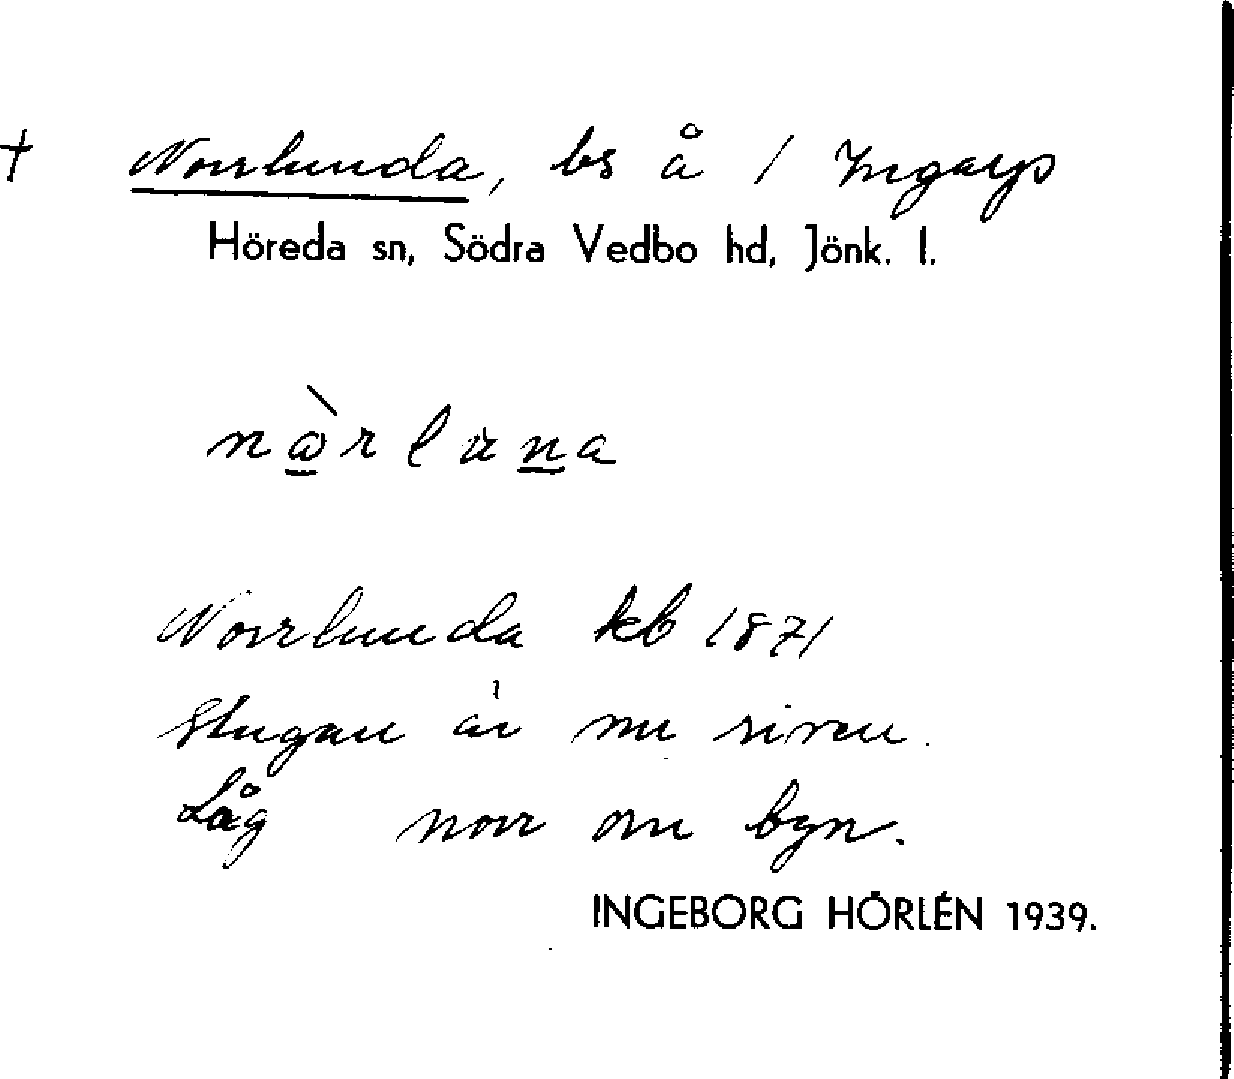 † Norrlunda, bs å 1 Ingarp
Höreda sn, Södra Vedbo hd, Jönk. l.
Norrlunda kb 1871
Stugan är nu riven.
Låg norr om byn.
INGEBORG HÖRLÉN 1939.